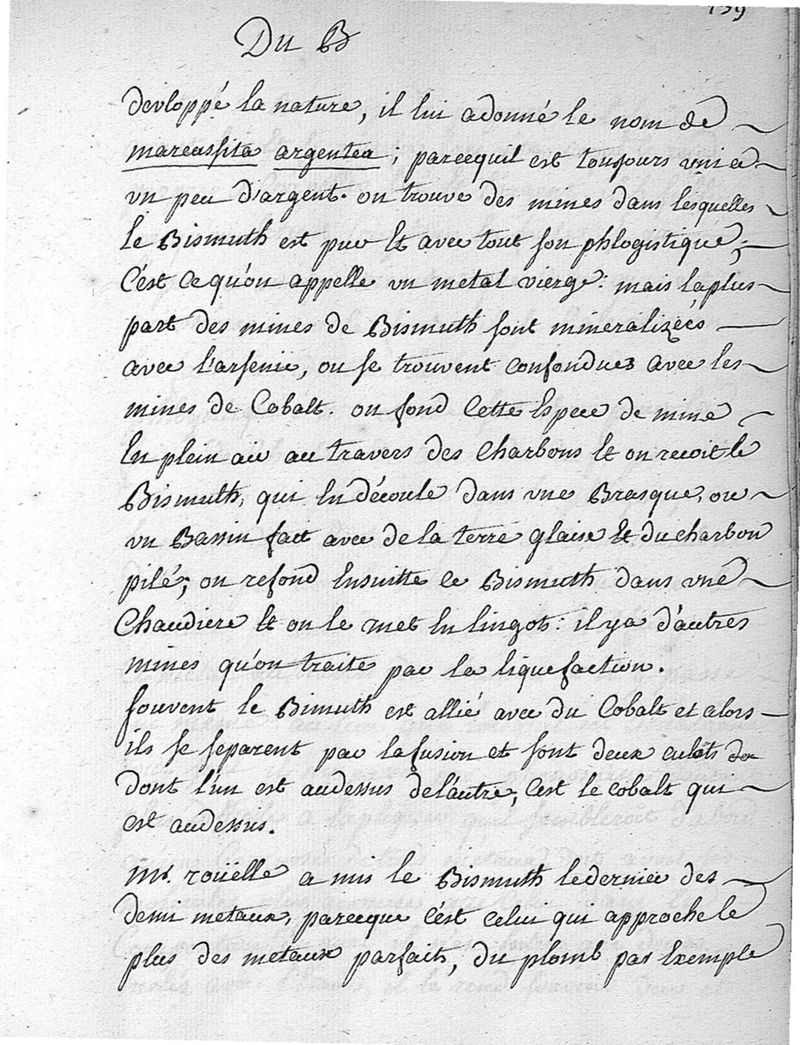 139
Du B
devloppé la nature, il lui adonné le nom de
marcassita argentea ; parcequil est toujours uni a
un peu d'argent. on trouve des mines dans lesquelles
le Bismuth est pur et avec tout son phlogistique ;
C'est ce qu'on appelle un metal vierge : mais la plus
part des mines de Bismuth sont mineralizeés
avec l'arsenic, ou se trouvent confondues avec les
mines de Cobalt. on fond cette Espece de mine
En plein air au travers des Charbons et on recoit le
Bismuth, qui En découle dans une Brasque, ou
un Bassin fait avec de la terre glaise et du charbon
pilé ; on refond Ensuitte ce Bismuth dans une
Chaudiere et on le met En lingots : il y a d'autres
mines qu'on traite par la liquefaction.
souvent le Bimuth est allié avec du Cobalt et alors
ils se separent par la fusion et font deux culots
dont l'un est audessus de l'autre, C'est le cobalt qui
est audessus.
Mr. roüelle a mis le Bismuth le dernier des
demi metaux, parceque c'est celui qui approche le
plus des metaux parfaits, du plomb par Exemple